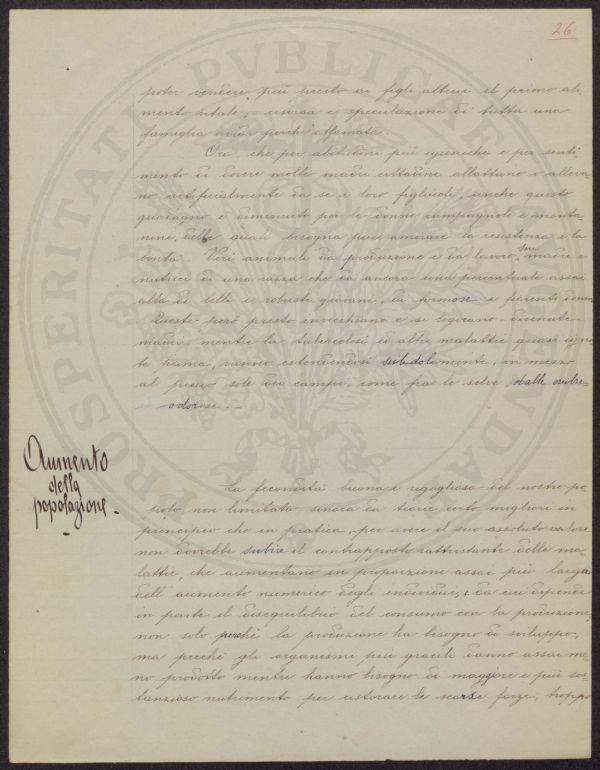 26
poter vendere più presto ai figli altrui il primo ali-
mento vitale, risorsa e speculazione di tutta una
famiglia avida perchè affamata.
Ora, che per abitudini più igieniche e per senti-
mento di dovere molte madri cittadine allattano o alleva-
no artificialmente da se i loro figliuoli, anche questo
guadagno è diminuito per le donne campagnole e monta-
nine, delle quali bisogna pure ammirare la resistenza e la
bontà. Veri animali da produzione e da lavoro, sono madri e
nutrici di una razza che dà ancora una percentuale assai
alta di belli e robusti giovani, di formose e fiorenti donne.
Queste però presto invecchiano e si logorano divenute
madri, mentre la tubercolosi ed altre malattie quasi igno-
te prima, vanno estendendosi subdolamente, in mezzo
al pieno sole dei campi, come fra le selve dalle ombre
odorose.-
Aumento
della
popolazione.
La fecondità buona e rigogliosa del nostro po-
polo non limitato sinora da teorie certo migliori in
principio che in pratica, per avere il suo assoluto valore
non dovrebbe subire il contrapposto rattristante delle ma-
lattie, che aumentano in proporzione assai più larga
dell'aumento numerico degli individui, e da cui dipende
in parte il disequilibrio del consumo con la produzione,
non solo perchè la produzione ha bisogno di sviluppo,
ma perchè gli organismi più gracili danno assai me-
no prodotto mentre hanno bisogno di maggiore e più sos-
tanzioso nutrimento per ristorare le scarse forze, troppo
PVBLICAE
PROSPERITATI